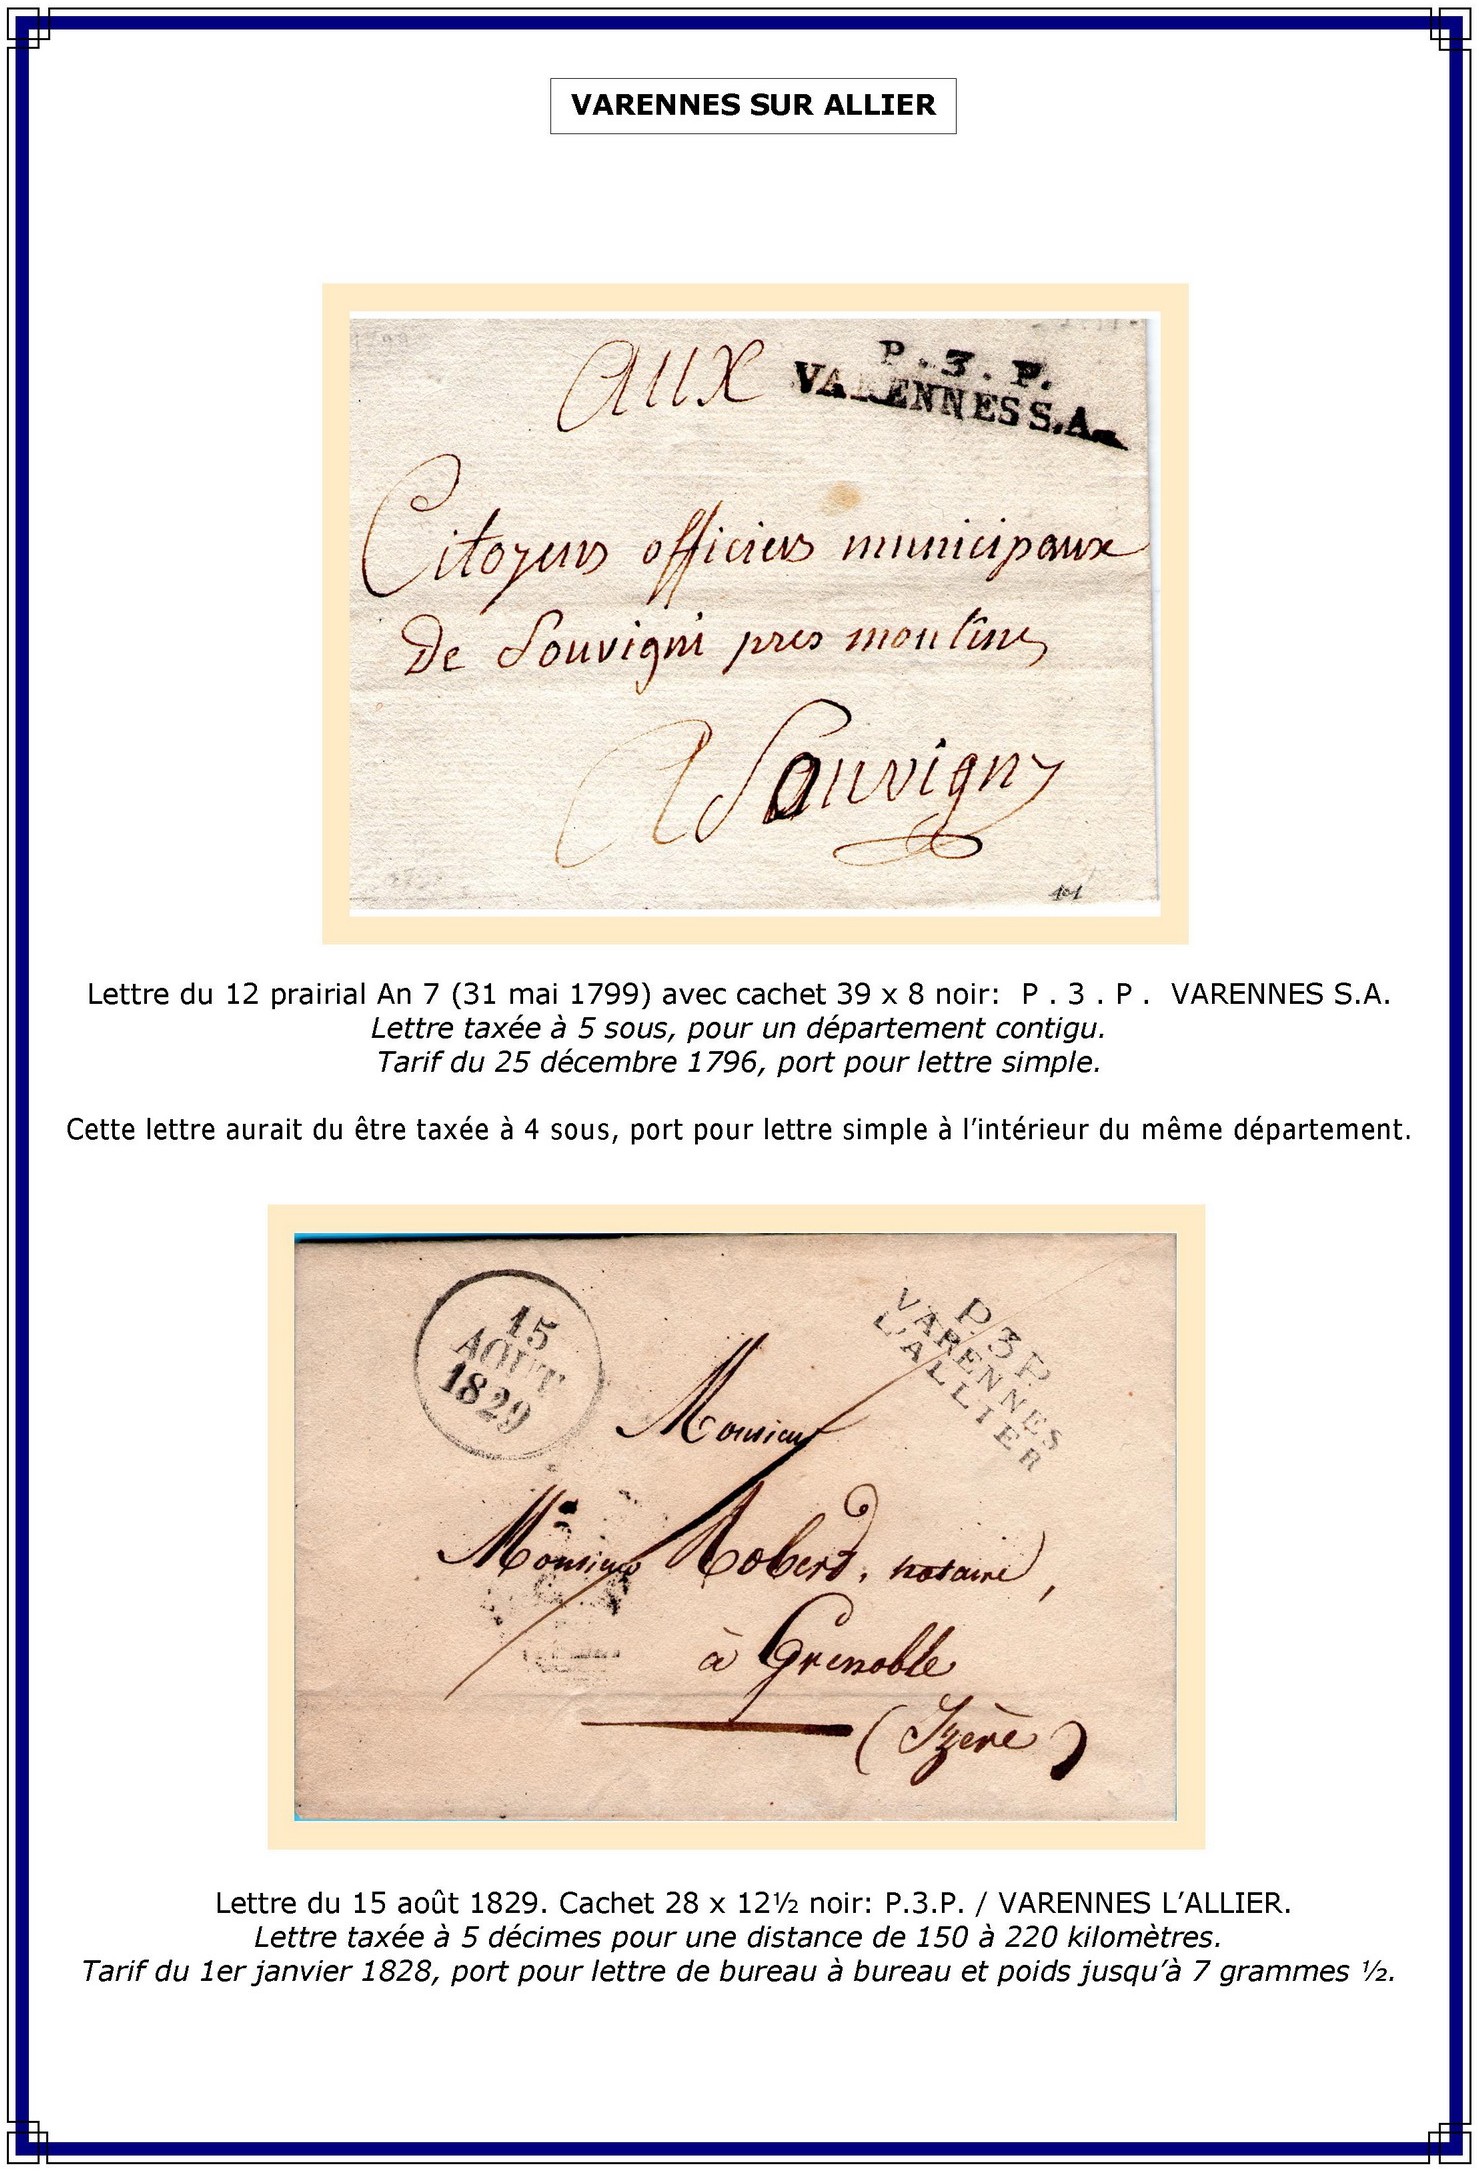 VARENNES SUR ALLIER
aux
P . 3 . P.
VARENNES S.A.
Citoyens officiers municipaux
De Souvigni pres moulins
A Souvigny
101
Lettre du 12 prairial An 7 (31 mai 1799) avec cachet 39 x 8 noir: P . 3 . P . VARENNES S.A.
Lettre taxée à 5 sous, pour un département contigu.
Tarif du 25 décembre 1796, port pour lettre simple.
Cette lettre aurait du être taxée à 4 sous, port pour lettre simple à l'intérieur du même département.
15
AOUT
1829
P.3.P.
VARENNES
L'ALLIER
Monsieur
Monsieur Robert, notaire,
à Grenoble
(Izère)
Lettre du 15 août 1829. Cachet 28 x 12½ noir: P.3.P. / VARENNES L'ALLIER.
Lettre taxée à 5 décimes pour une distance de 150 à 220 kilomètres.
Tarif du 1er janvier 1828, port pour lettre de bureau à bureau et poids jusqu'à 7 grammes ½.